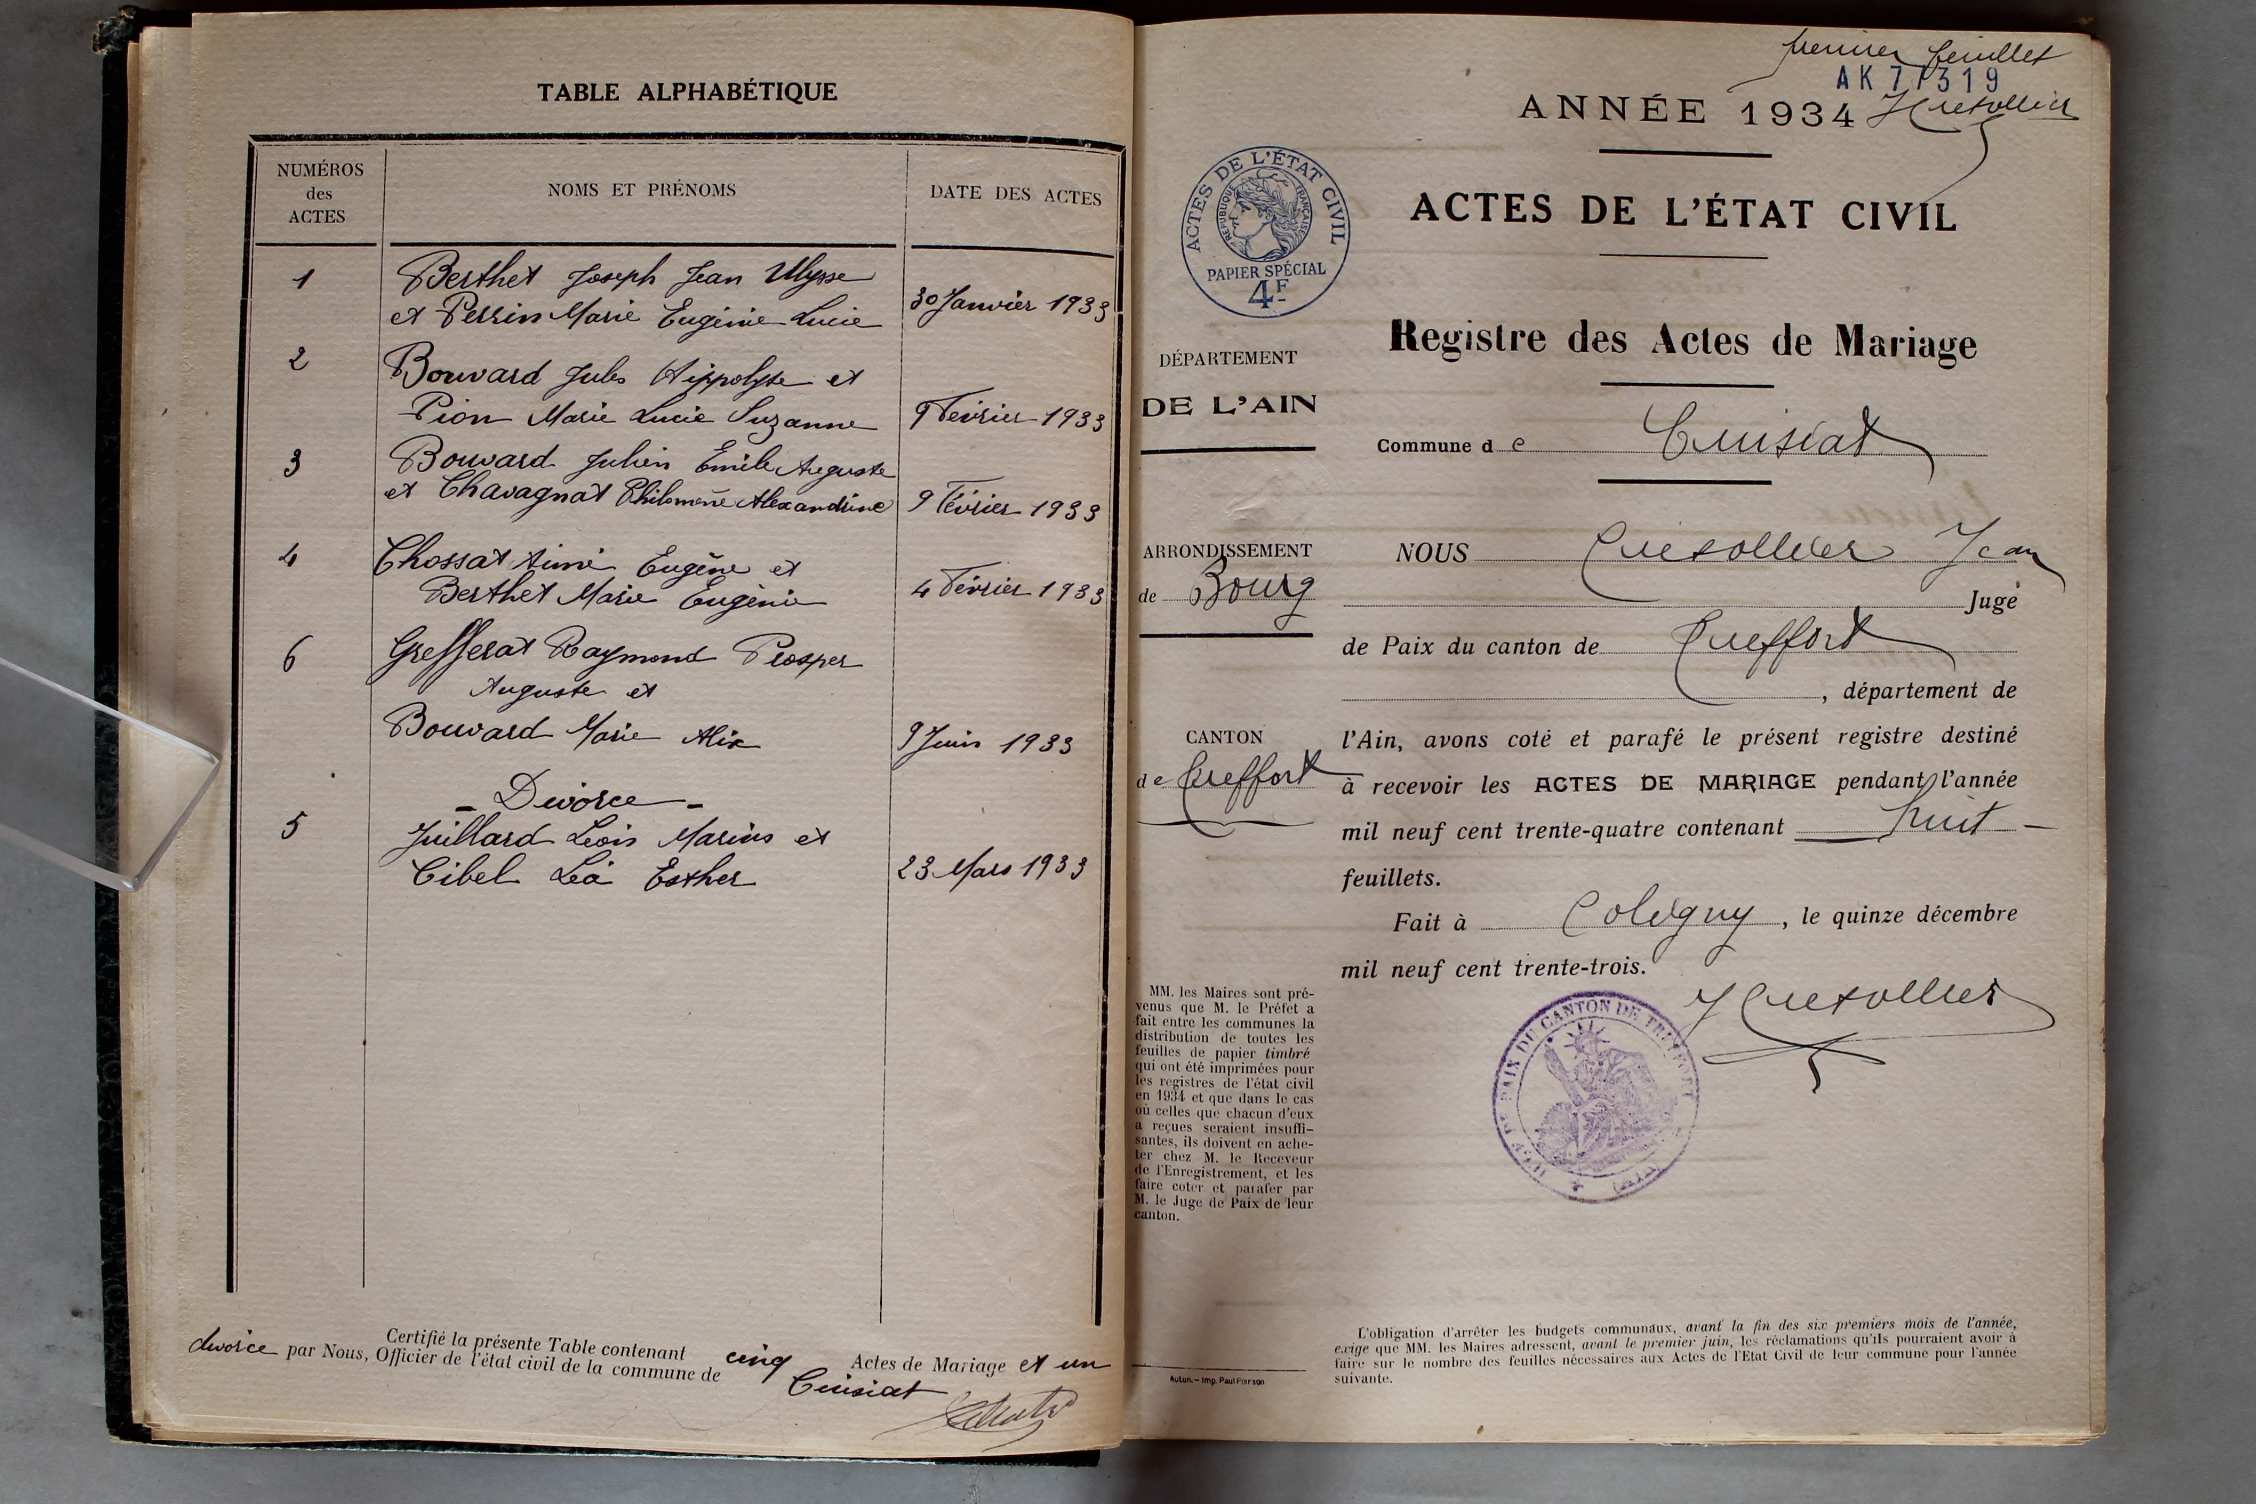 TABLE ALPHABÉTIQUE
NUMÉROS
des
ACTES
NOMS ET PRÉNOMS
DATE DES ACTES
1 Berthet Joseph Jean Ulysse
et Perrin Marie Eugénie Lucie 30 Janvier 1933
2 Bouvard Jules Hippolyte et
Pion Marie Lucie Suzanne 9 Février 1933
3 Bouvard Julien Emile Auguste
et Chavagnat Philomène Alexandrine 9 Février 1933
4 Chossat Aimé Eugène et
Berthet Marie Eugénie 4 Février 1933
6 Grefferat Raymond Prosper
Auguste et
Bouvard Marie Alix 9 Juin 1933
- Divorce -
5 Juillard Léon Marius et
Cibel Léa Esther 23 Mars 1933
Certifié la présente Table contenant cinq Actes de Mariage et un
divorce par Nous, Officier de l'état civil de la commune de Cuisiat
premier feuillet
AK 77319
ANNÉE 1934
ACTES DE L'ÉTAT CIVIL
RÉPUBLIQUE FRANÇAISE
PAPIER SPÉCIAL
4F
ACTES DE L'ÉTAT CIVIL
Registre des Actes de Mariage
DÉPARTEMENT
DE L'AIN
Commune de Cuisiat
ARRONDISSEMENT
de Bourg
CANTON
de Treffort
MM. les Maires sont pré-
venus que M. le Préfet a
fait entre les communes la
distribution de toutes les
feuilles de papier timbré
qui ont été imprimées pour
les registres de l'état civil
en 1934 et que dans le cas
où celles que chacun d'eux
a reçues seraient insuffi-
santes, ils doivent en ache-
ter chez M. le Receveur
de l'Enregistrement, et les
faire coter et parafer par
M. le Juge de Paix de leur
canton.
Autun. - Imp. Paul Pierson
NOUS Cretollier Jean
Juge
de Paix du canton de Treffort
, département de
l'Ain, avons coté et parafé le présent registre destiné
à recevoir les ACTES DE MARIAGE pendant l'année
mil neuf cent trente-quatre contenant huit
feuillets.
Fait à Coligny, le quinze décembre
mil neuf cent trente-trois.
DE PAIX DU CANTON DE TREFFORT
(AIN)
L'obligation d'arrêter les budgets communaux, avant la fin des six premiers mois de l'année,
exige que MM. les Maires adressent, avant le premier juin, les réclamations qu'ils pourraient avoir à
faire sur le nombre des feuilles nécessaires aux Actes de l'Etat Civil de leur commune pour l'année
suivante.